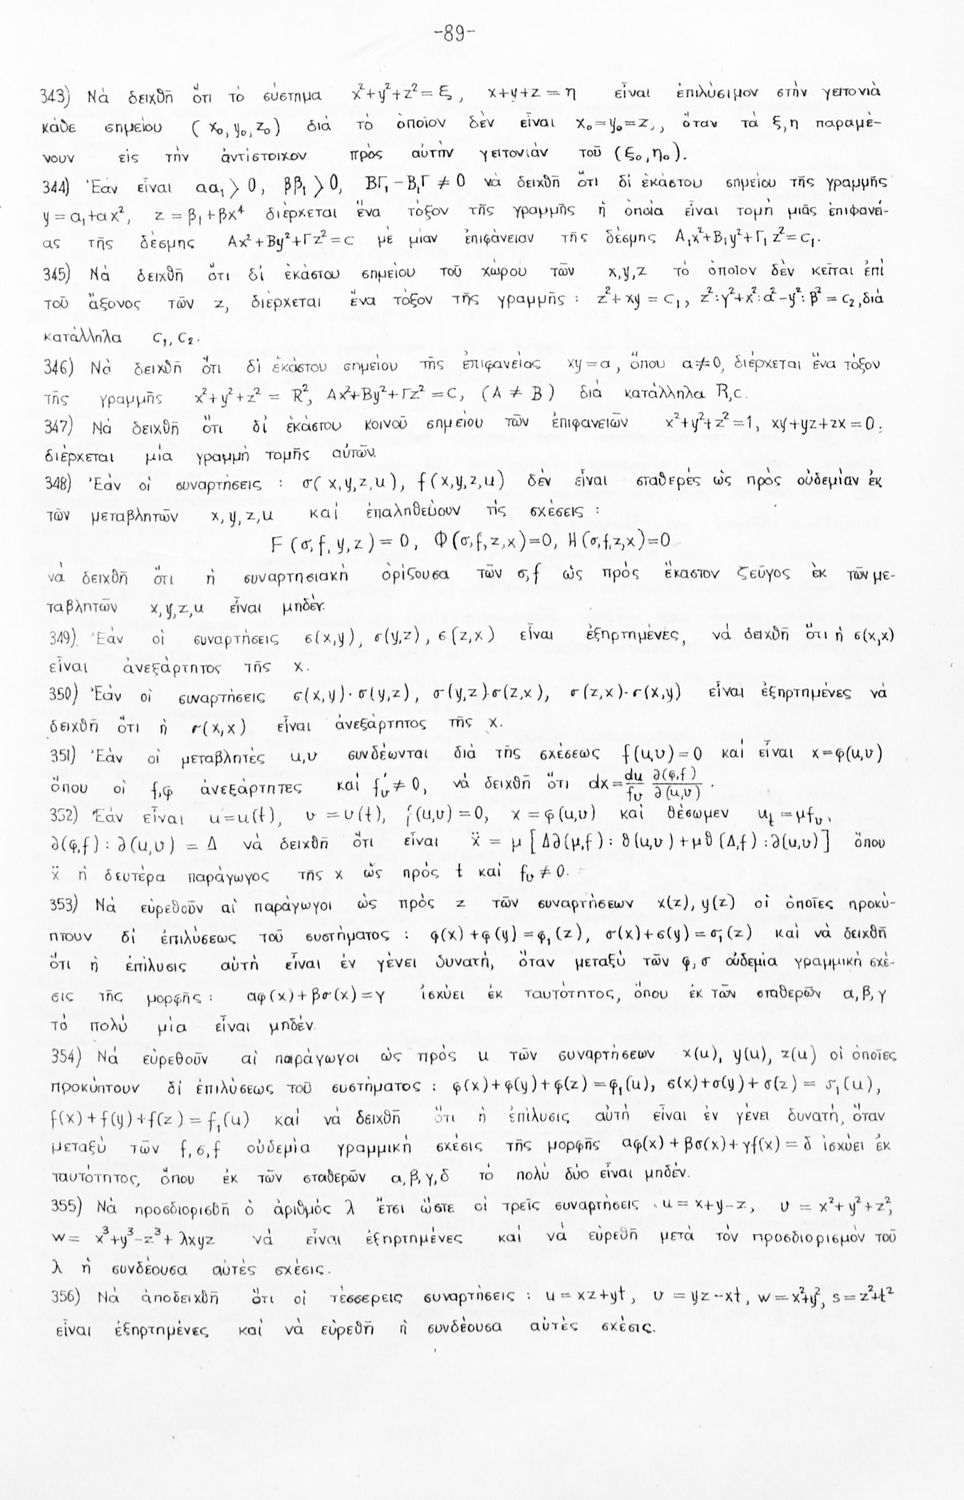 -89-
343) Νὰ δειχθῇ ὅτι τὸ σύστημα x²+y²+z²=ξ, x+y+z=η εἶναι ἐπιλύσιμον στὴν γειτονιὰ
κάθε σημείου (x₀,y₀,z₀) διὰ τὸ ὁποῖον δὲν εἶναι x₀=y₀=z₀, ὅταν τὰ ξ,η παραμέ-
νουν εἰς τὴν ἀντίστοιχον πρὸς αὐτὴν γειτονιάν τοῦ (ξ₀,η₀).
344) Ἐὰν εἶναι αα₁〉0, ββ₁〉0, ΒΓ₁-Β₁Γ ≠ 0 νὰ δειχθῇ ὅτι δι' ἑκάστου σημείου τῆς γραμμῆς
y=α₁+αx², z=β₁+βx⁴ διέρχεται ἕνα τόξον τῆς γραμμῆς ἡ ὁποία εἶναι τομὴ μιᾶς ἐπιφανεί-
ας τῆς δέσμης Ax²+By²+Γz²=c μὲ μίαν ἐπιφάνειαν τῆς δέσμης A₁x²+B₁y²+Γ₁z²=c₁.
345) Νὰ δειχθῇ ὅτι δι' ἑκάστου σημείου τοῦ χώρου τῶν x,y,z τὸ ὁποῖον δὲν κεῖται ἐπὶ
τοῦ ἄξονος τῶν z, διέρχεται ἕνα τόξον τῆς γραμμῆς : z²+xy=c₁, z²:γ²+x²:α²-y²:β²=c₂, διὰ
κατάλληλα c₁,c₂.
346) Νὰ δειχθῇ ὅτι δι' ἑκάστου σημείου τῆς ἐπιφανείας xy=α, ὅπου α≠0, διέρχεται ἕνα τόξον
τῆς γραμμῆς x²+y²+z² = R², Ax²+By²+Γz²=C, (A ≠ B) διὰ κατάλληλα R,c.
347) Νὰ δειχθῇ ὅτι δι' ἑκάστου κοινοῦ σημείου τῶν ἐπιφανειῶν x²+y²+z²=1, xy+yz+zx=0.
διέρχεται μία γραμμὴ τομῆς αὐτῶν.
348) Ἐὰν οἱ συναρτήσεις : σ(x,y,z,u), f(x,y,z,u) δὲν εἶναι σταθερὲς ὡς πρὸς οὐδεμίαν ἐκ
τῶν μεταβλητῶν x,y,z,u καὶ ἐπαληθεύουν τὶς σχέσεις :
F(σ,f,y,z)=0, Φ(σ,f,z,x)=0, H(σ,f,z,x)=0
νὰ δειχθῇ ὅτι ἡ συναρτησιακὴ ὁρίζουσα τῶν σ,f ὡς πρὸς ἕκαστον ζεῦγος ἐκ τῶν με-
ταβλητῶν x,y,z,u εἶναι μηδέν.
349) Ἐὰν οἱ συναρτήσεις σ(x,y), σ(y,z), σ(z,x) εἶναι ἐξηρτημένες, νὰ δειχθῇ ὅτι ἡ σ(x,x)
εἶναι ἀνεξάρτητος τῆς x.
350) Ἐὰν οἱ συναρτήσεις σ(x,y)·σ(y,z), σ(y,z)·σ(z,x), σ(z,x)·σ(x,y) εἶναι ἐξηρτημένες νὰ
δειχθῇ ὅτι ἡ σ(x,x) εἶναι ἀνεξάρτητος τῆς x.
351) Ἐὰν οἱ μεταβλητὲς u,υ συνδέωνται διὰ τῆς σχέσεως f(u,υ)=0 καὶ εἶναι x=φ(u,υ)
ὅπου οἱ f,φ ἀνεξάρτητες καὶ f'υ≠0, νὰ δειχθῇ ὅτι dx= du/fυ ∂(φ,f)/∂(u,υ).
352) Ἐὰν εἶναι u=u(t), υ=υ(t), f(u,υ)=0, x=φ(u,υ) καὶ θέσωμεν uₜ=μfυ,
∂(φ,f):∂(u,υ)=Δ νὰ δειχθῇ ὅτι εἶναι ẍ = μ[Δ∂(μ,f):∂(u,υ)+μ∂(Δ,f):∂(u,υ)] ὅπου
ẍ ἡ δευτέρα παράγωγος τῆς x ὡς πρὸς t καὶ fυ≠0.
353) Νὰ εὑρεθοῦν αἱ παράγωγοι ὡς πρὸς z τῶν συναρτήσεων x(z), y(z) οἱ ὁποῖες προκύ-
πτουν δι' ἐπιλύσεως τοῦ συστήματος : φ(x)+φ(y)=φ₁(z), σ(x)+σ(y)=σ₁(z) καὶ νὰ δειχθῇ
ὅτι ἡ ἐπίλυσις αὐτὴ εἶναι ἐν γένει δυνατή, ὅταν μεταξὺ τῶν φ,σ οὐδεμία γραμμικὴ σχέ-
σις τῆς μορφῆς : αφ(x)+βσ(x)=γ ἰσχύει ἐκ ταυτότητος, ὅπου ἐκ τῶν σταθερῶν α,β,γ
τὸ πολὺ μία εἶναι μηδέν.
354) Νὰ εὑρεθοῦν αἱ παράγωγοι ὡς πρὸς u τῶν συναρτήσεων x(u), y(u), z(u) οἱ ὁποῖες
προκύπτουν δι' ἐπιλύσεως τοῦ συστήματος : φ(x)+φ(y)+φ(z)=φ₁(u), σ(x)+σ(y)+σ(z)=σ₁(u),
f(x)+f(y)+f(z)=f₁(u) καὶ νὰ δειχθῇ ὅτι ἡ ἐπίλυσις αὐτὴ εἶναι ἐν γένει δυνατή, ὅταν
μεταξὺ τῶν f,σ,f οὐδεμία γραμμικὴ σχέσις τῆς μορφῆς αφ(x)+βσ(x)+γf(x)=δ ἰσχύει ἐκ
ταυτότητος, ὅπου ἐκ τῶν σταθερῶν α,β,γ,δ τὸ πολὺ δύο εἶναι μηδέν.
355) Νὰ προσδιορισθῇ ὁ ἀριθμὸς λ ἔτσι ὥστε οἱ τρεῖς συναρτήσεις u=x+y-z, υ=x²+y²+z²,
w= x³+y³-z³+λxyz νὰ εἶναι ἐξηρτημένες καὶ νὰ εὑρεθῇ μετὰ τὸν προσδιορισμὸν τοῦ
λ ἡ συνδέουσα αὐτὲς σχέσις.
356) Νὰ ἀποδειχθῇ ὅτι οἱ τέσσερεις συναρτήσεις : u=xz+yt, υ=yz-xt, w=x²+y², s=z²+t²
εἶναι ἐξηρτημένες καὶ νὰ εὑρεθῇ ἡ συνδέουσα αὐτὲς σχέσις.